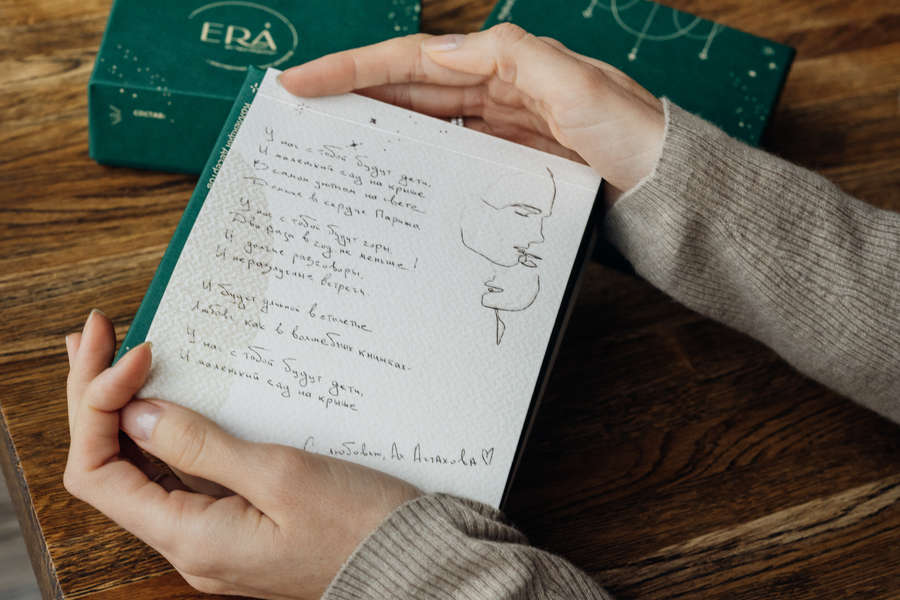 ERÁ
СОСТАВ:
У нас с тобой будут дети,
И маленький сад на крыше
В самом уютном на свете
Домике в сердце Парижа.
У нас с тобой будут горы,
Два раза в год не меньше!
И долгие разговоры,
И неразлучные встречи.
И будет длиной в столетие
Любовь как в волшебных книжках.
У нас с тобой будут дети,
И маленький сад на крыше
С любовью, А. Астахова